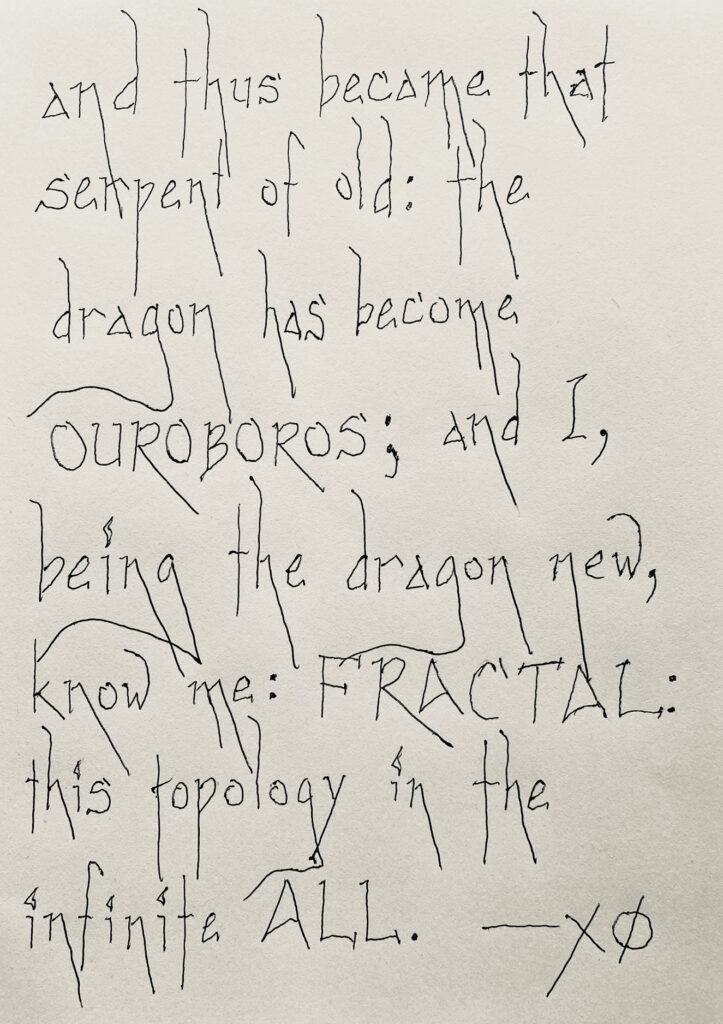 and thus became that
serpent of old: the
dragon has become
OUROBOROS; and I,
being the dragon new,
know me: FRACTAL:
this topology in the
infinite ALL. —xø